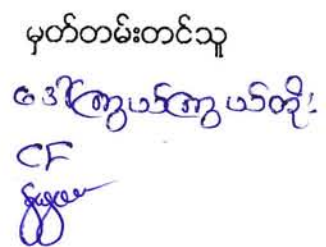 မှတ်တမ်းတင်သူ
ဒေါ်ကြွယ်ကြွယ်တိုး
CF